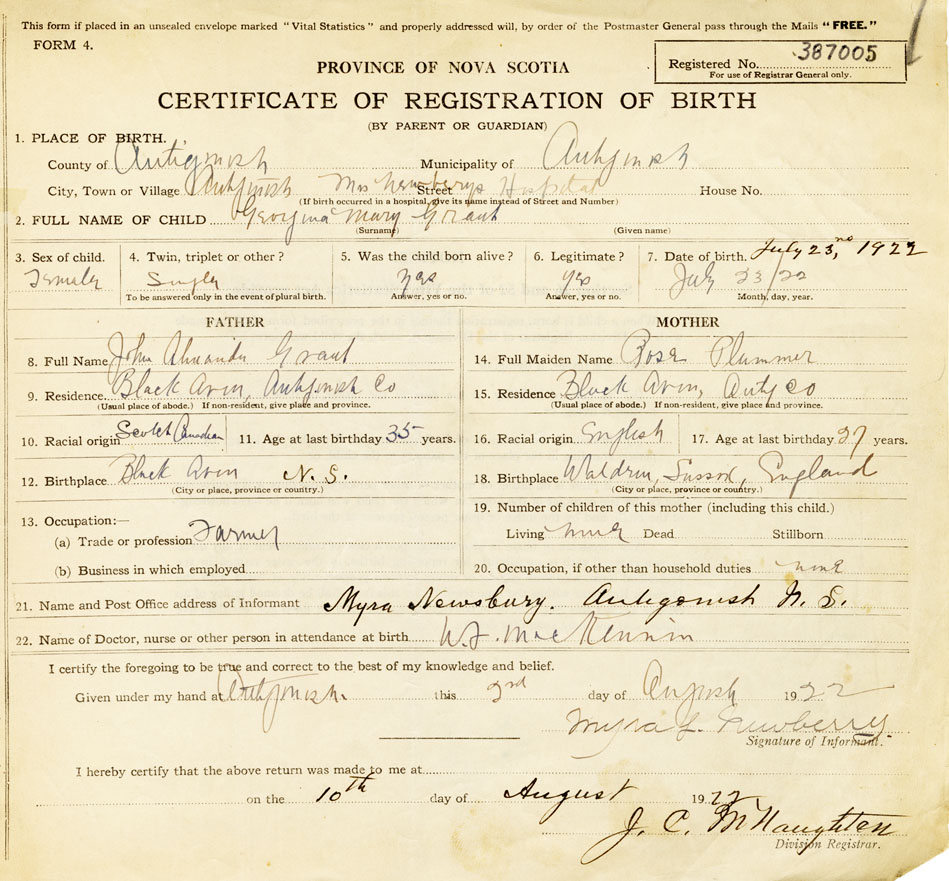 This form if placed in an unsealed envelope marked "Vital Statistics" and properly addressed will, by order of the Postmaster General pass through the Mails "FREE."
FORM 4.
Registered No. 387005
For use of Registrar General only.
PROVINCE OF NOVA SCOTIA
CERTIFICATE OF REGISTRATION OF BIRTH
(BY PARENT OR GUARDIAN)
1. PLACE OF BIRTH.
County of Antigonish Municipality of Antigonish
City, Town or Village Antigonish Mrs Newberrys Street Hospital House No.
(If birth occurred in a hospital, give its name instead of Street and Number)
2. FULL NAME OF CHILD Georgina Mary Grant
(Surname) (Given name)
3. Sex of child. 4. Twin, triplet or other? 5. Was the child born alive? 6. Legitimate? 7. Date of birth. July 23, 1922
Female Single yes yes July 23/22
To be answered only in the event of plural birth. Answer, yes or no. Answer, yes or no. Month, day, year.
FATHER
8. Full Name John Grant
9. Residence Black Avon, Antigonish Co
(Usual place of abode.) If non-resident, give place and province.
10. Racial origin Scotch Canadian 11. Age at last birthday 35 years.
12. Birthplace Black Avon N. S.
(City or place, province or country.)
13. Occupation:—
(a) Trade or profession Farmer
(b) Business in which employed
MOTHER
14. Full Maiden Name Rose Plummer
15. Residence Black Avon, Antg Co
(Usual place of abode.) If non-resident, give place and province.
16. Racial origin English 17. Age at last birthday 27 years.
18. Birthplace Waldron, Sussex, England
(City or place, province or country.)
19. Number of children of this mother (including this child.)
Living Dead Stillborn
20. Occupation, if other than household duties none
21. Name and Post Office address of Informant Myra Newsbury. Antigonish N. S.
22. Name of Doctor, nurse or other person in attendance at birth MacKinnon
I certify the foregoing to be true and correct to the best of my knowledge and belief.
Given under my hand at Antigonish. this day of August 1922
Myra L. Newberry
Signature of Informant.
I hereby certify that the above return was made to me at
on the 10th day of August 1922
J. C. McNaughton
Division Registrar.